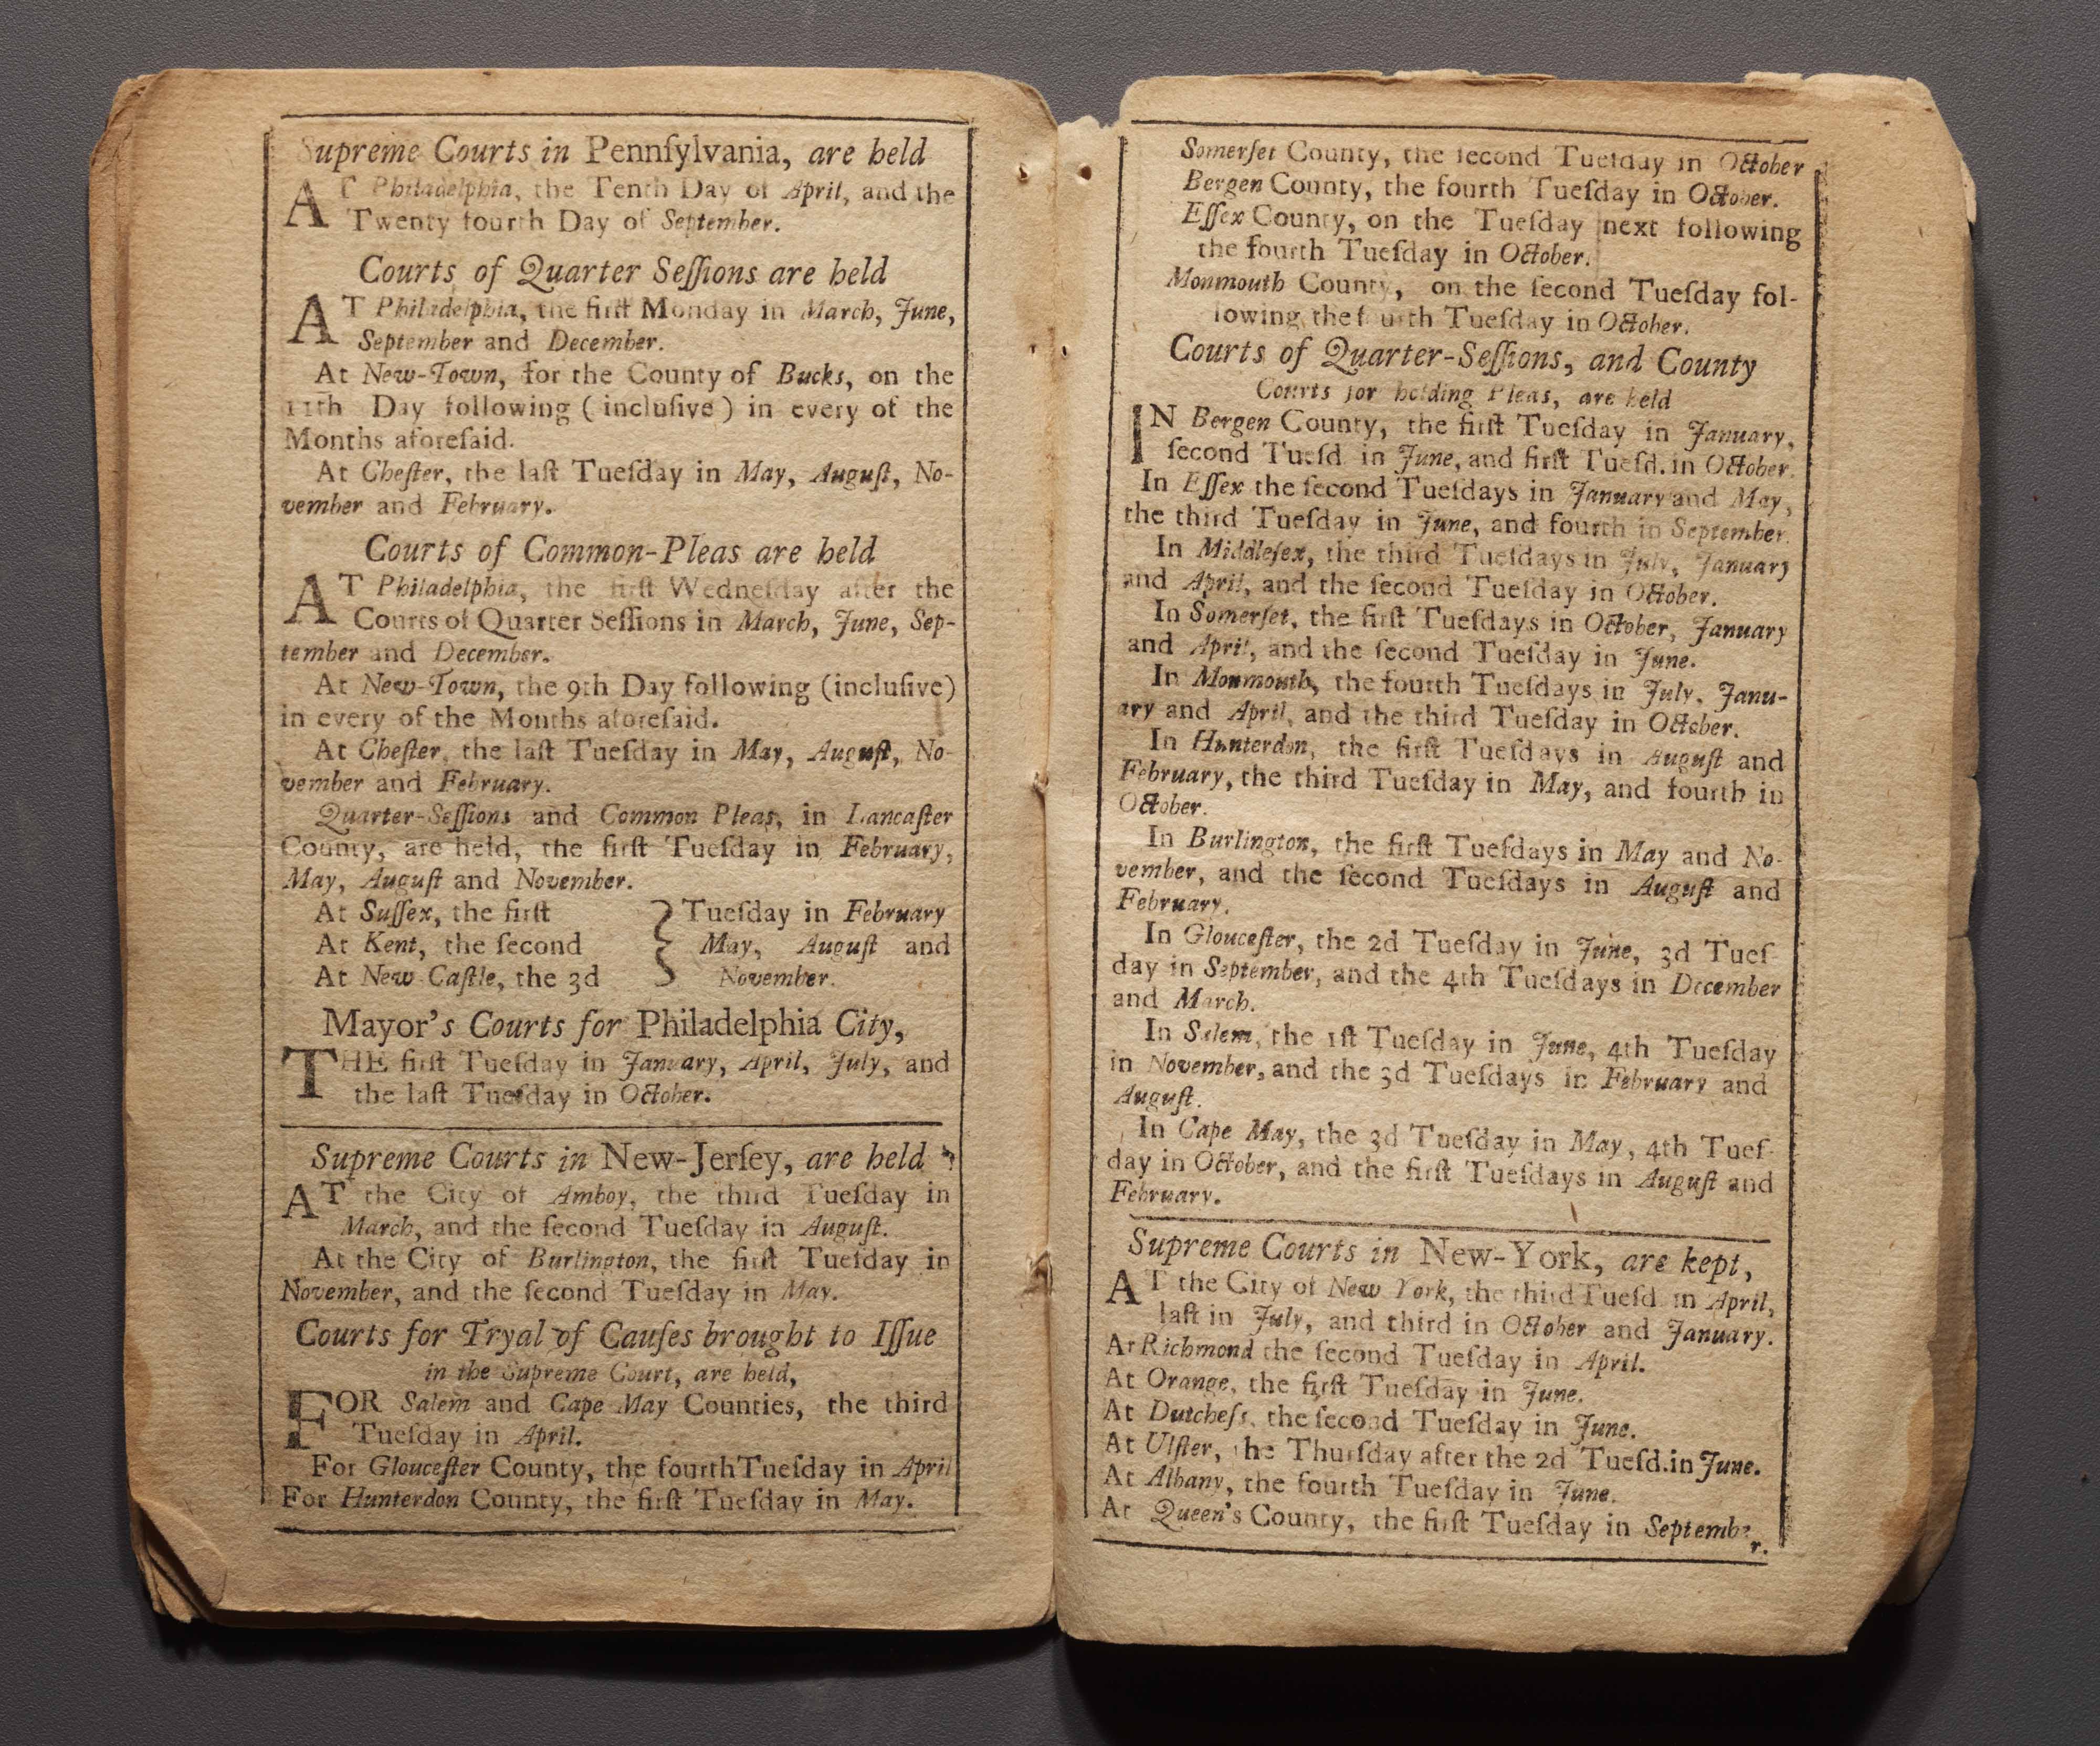 Supreme Courts in Pennſylvania, are held
AT Philadelphia, the Tenth Day of April, and the
Twenty fourth Day of September.
Courts of Quarter Seſſions are held
AT Philadelphia, the firſt Monday in March, June,
September and December.
At New-Town, for the County of Bucks, on the
11th Day following (incluſive) in every of the
Months aforeſaid.
At Cheſter, the laſt Tueſday in May, Auguſt, No-
vember and February.
Courts of Common-Pleas are held
AT Philadelphia, the firſt Wedneſday after the
Courts of Quarter Seſſions in March, June, Sep-
tember and December.
At New-Town, the 9th Day following (incluſive)
in every of the Months aforeſaid.
At Cheſter, the laſt Tueſday in May, Auguſt, No-
vember and February.
Quarter-Seſſions and Common Pleas, in Lancaſter
County, are held, the firſt Tueſday in February,
May, Auguſt and November.
At Suſſex, the firſt } Tueſday in February
At Kent, the ſecond } May, Auguſt and
At New Caſtle, the 3d } November.
Mayor's Courts for Philadelphia City,
THE firſt Tueſday in January, April, July, and
the laſt Tueſday in October.
Supreme Courts in New-Jerſey, are held
AT the City of Amboy, the third Tueſday in
March, and the ſecond Tueſday in Auguſt.
At the City of Burlington, the firſt Tueſday in
November, and the ſecond Tueſday in May.
Courts for Tryal of Cauſes brought to Iſſue
in the Supreme Court, are held,
FOR Salem and Cape May Counties, the third
Tueſday in April.
For Glouceſter County, the fourth Tueſday in April
For Hunterdon County, the firſt Tueſday in May.
Somerſet County, the ſecond Tueſday in October
Bergen County, the fourth Tueſday in October.
Eſſex County, on the Tueſday next following
the fourth Tueſday in October.
Monmouth County, on the ſecond Tueſday fol-
lowing the fourth Tueſday in October.
Courts of Quarter-Seſſions, and County
Courts for holding Pleas, are held
IN Bergen County, the firſt Tueſday in January,
ſecond Tueſd. in June, and firſt Tueſd. in October.
In Eſſex the ſecond Tueſdays in January and May,
the third Tueſday in June, and fourth in September.
In Middleſex, the third Tueſdays in July, January
and April, and the ſecond Tueſday in October.
In Somerſet, the firſt Tueſdays in October, January
and April, and the ſecond Tueſday in June.
In Monmouth, the fourth Tueſdays in July, Janu-
ary and April, and the third Tueſday in October.
In Hunterdon, the firſt Tueſdays in Auguſt and
February, the third Tueſday in May, and fourth in
October.
In Burlington, the firſt Tueſdays in May and No-
vember, and the ſecond Tueſdays in Auguſt and
February.
In Glouceſter, the 2d Tueſday in June, 3d Tueſ-
day in September, and the 4th Tueſdays in December
and March.
In Salem, the 1ſt Tueſday in June, 4th Tueſday
in November, and the 3d Tueſdays in February and
Auguſt.
In Cape May, the 3d Tueſday in May, 4th Tueſ-
day in October, and the firſt Tueſdays in Auguſt and
February.
Supreme Courts in New-York, are kept,
AT the City of New York, the third Tueſd. in April,
laſt in July, and third in October and January.
At Richmond the ſecond Tueſday in April.
At Orange, the firſt Tueſday in June.
At Dutcheſs, the ſecond Tueſday in June.
At Ulſter, the Thurſday after the 2d Tueſd. in June.
At Albany, the fourth Tueſday in June.
At Queen's County, the firſt Tueſday in September.